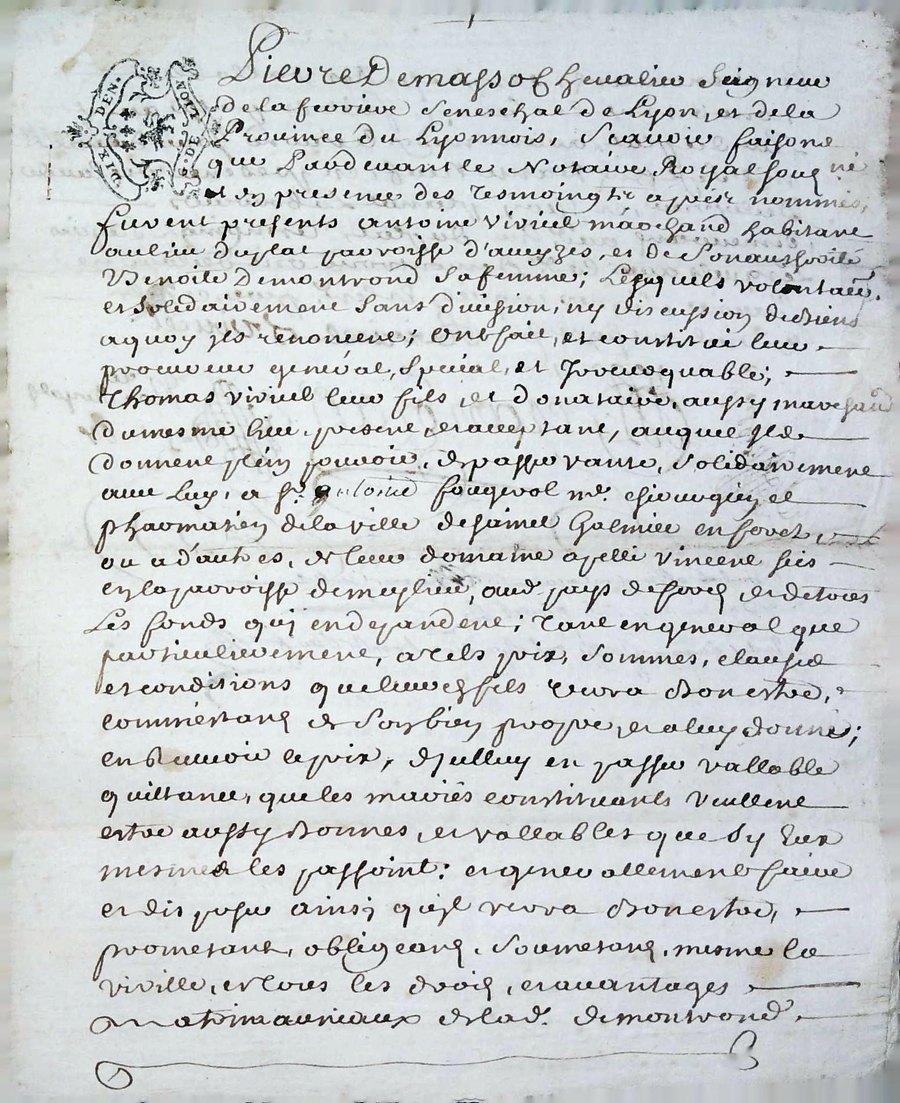 SIX DEN. G. DE NOIT
Pierre Demasso Chevalier Seigneur
de la ferriere Seneschal de Lyon, et de la
Province du Lyonnois, Scavoir faisons
que Pardevant le Notaire Royal soussigné
et en presence des tesmoingtz apres nommes,
furent presents antoine viviel marchand habitant
au lieu du plat parroisse d'aveyzes, et de Son authorite
Benoite Demontrond Sa femme; Lesquels volontairt.
et solidairement Sans division, ny discussion de biens
a quoy ils renoncent; Ont fait, et constitué leur
procureur general, Special, et Irrevoquable;
Thomas viviel leur fils, et donataire, aussy marchand
du mesme lieu, present, et acceptant, auquel Ils
donnent plein pouvoir, de passer vante, Solidairement
avec Luy, a Sr. antoine fougerol me. chirurgien et
pharmatien de la ville de saint Galmier en forest,
ou a d'autres, de leur domaine apellé vincent sis
en la parroisse de meylieu, aud. pays de forest et de tous
Les fonds quj en dependent; tant en general que
particulierement, a tels prix, Sommes, clauses
et conditions que leurd. fils verra bon estre,
comme estant de Son bien propre, et a luy donné;
en recevoir le prix, d'icelluy en passer vallable
quittance, que les mariés constituants veullent
estre aussy bonnes, et vallables que Sy Eux
mesmes les passoint; et generallement faire
et disposer ainsi qu'il verra bon estre,
prometant, obligeant, Soumetant, mesme la
viville, et tous les droits, et avantages
matrimauniaux de lad. demontrond.